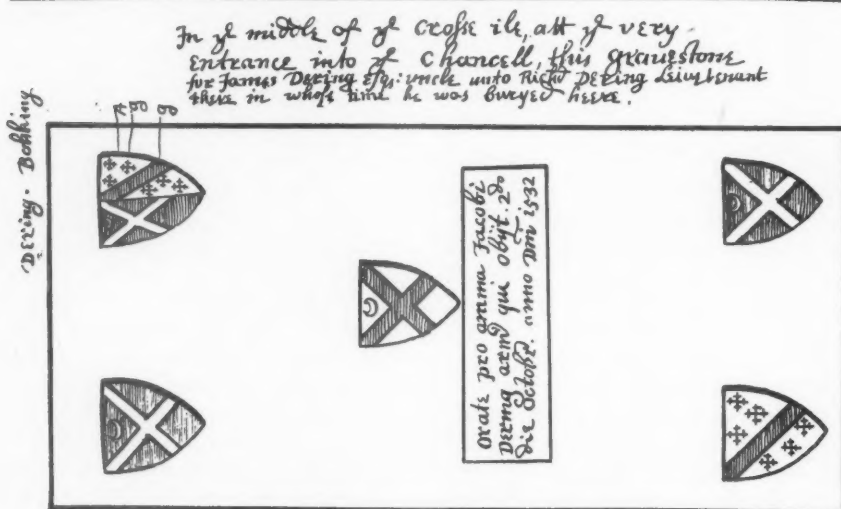 In yͤ middle of yͤ crosse ile, att yͤ very
entrance into yͤ Chancell, this gravestone
for James Dering esqʳ: uncle unto Richᵈ Dering Leiuetenant
there in whose time he was buryed heere.
A g g
Dering. Bokking
Orate pro anima Jacobi
Dering armʳ qui obijt. 2ᵈᵒ
die Octobr. anno Dm̄ 1532